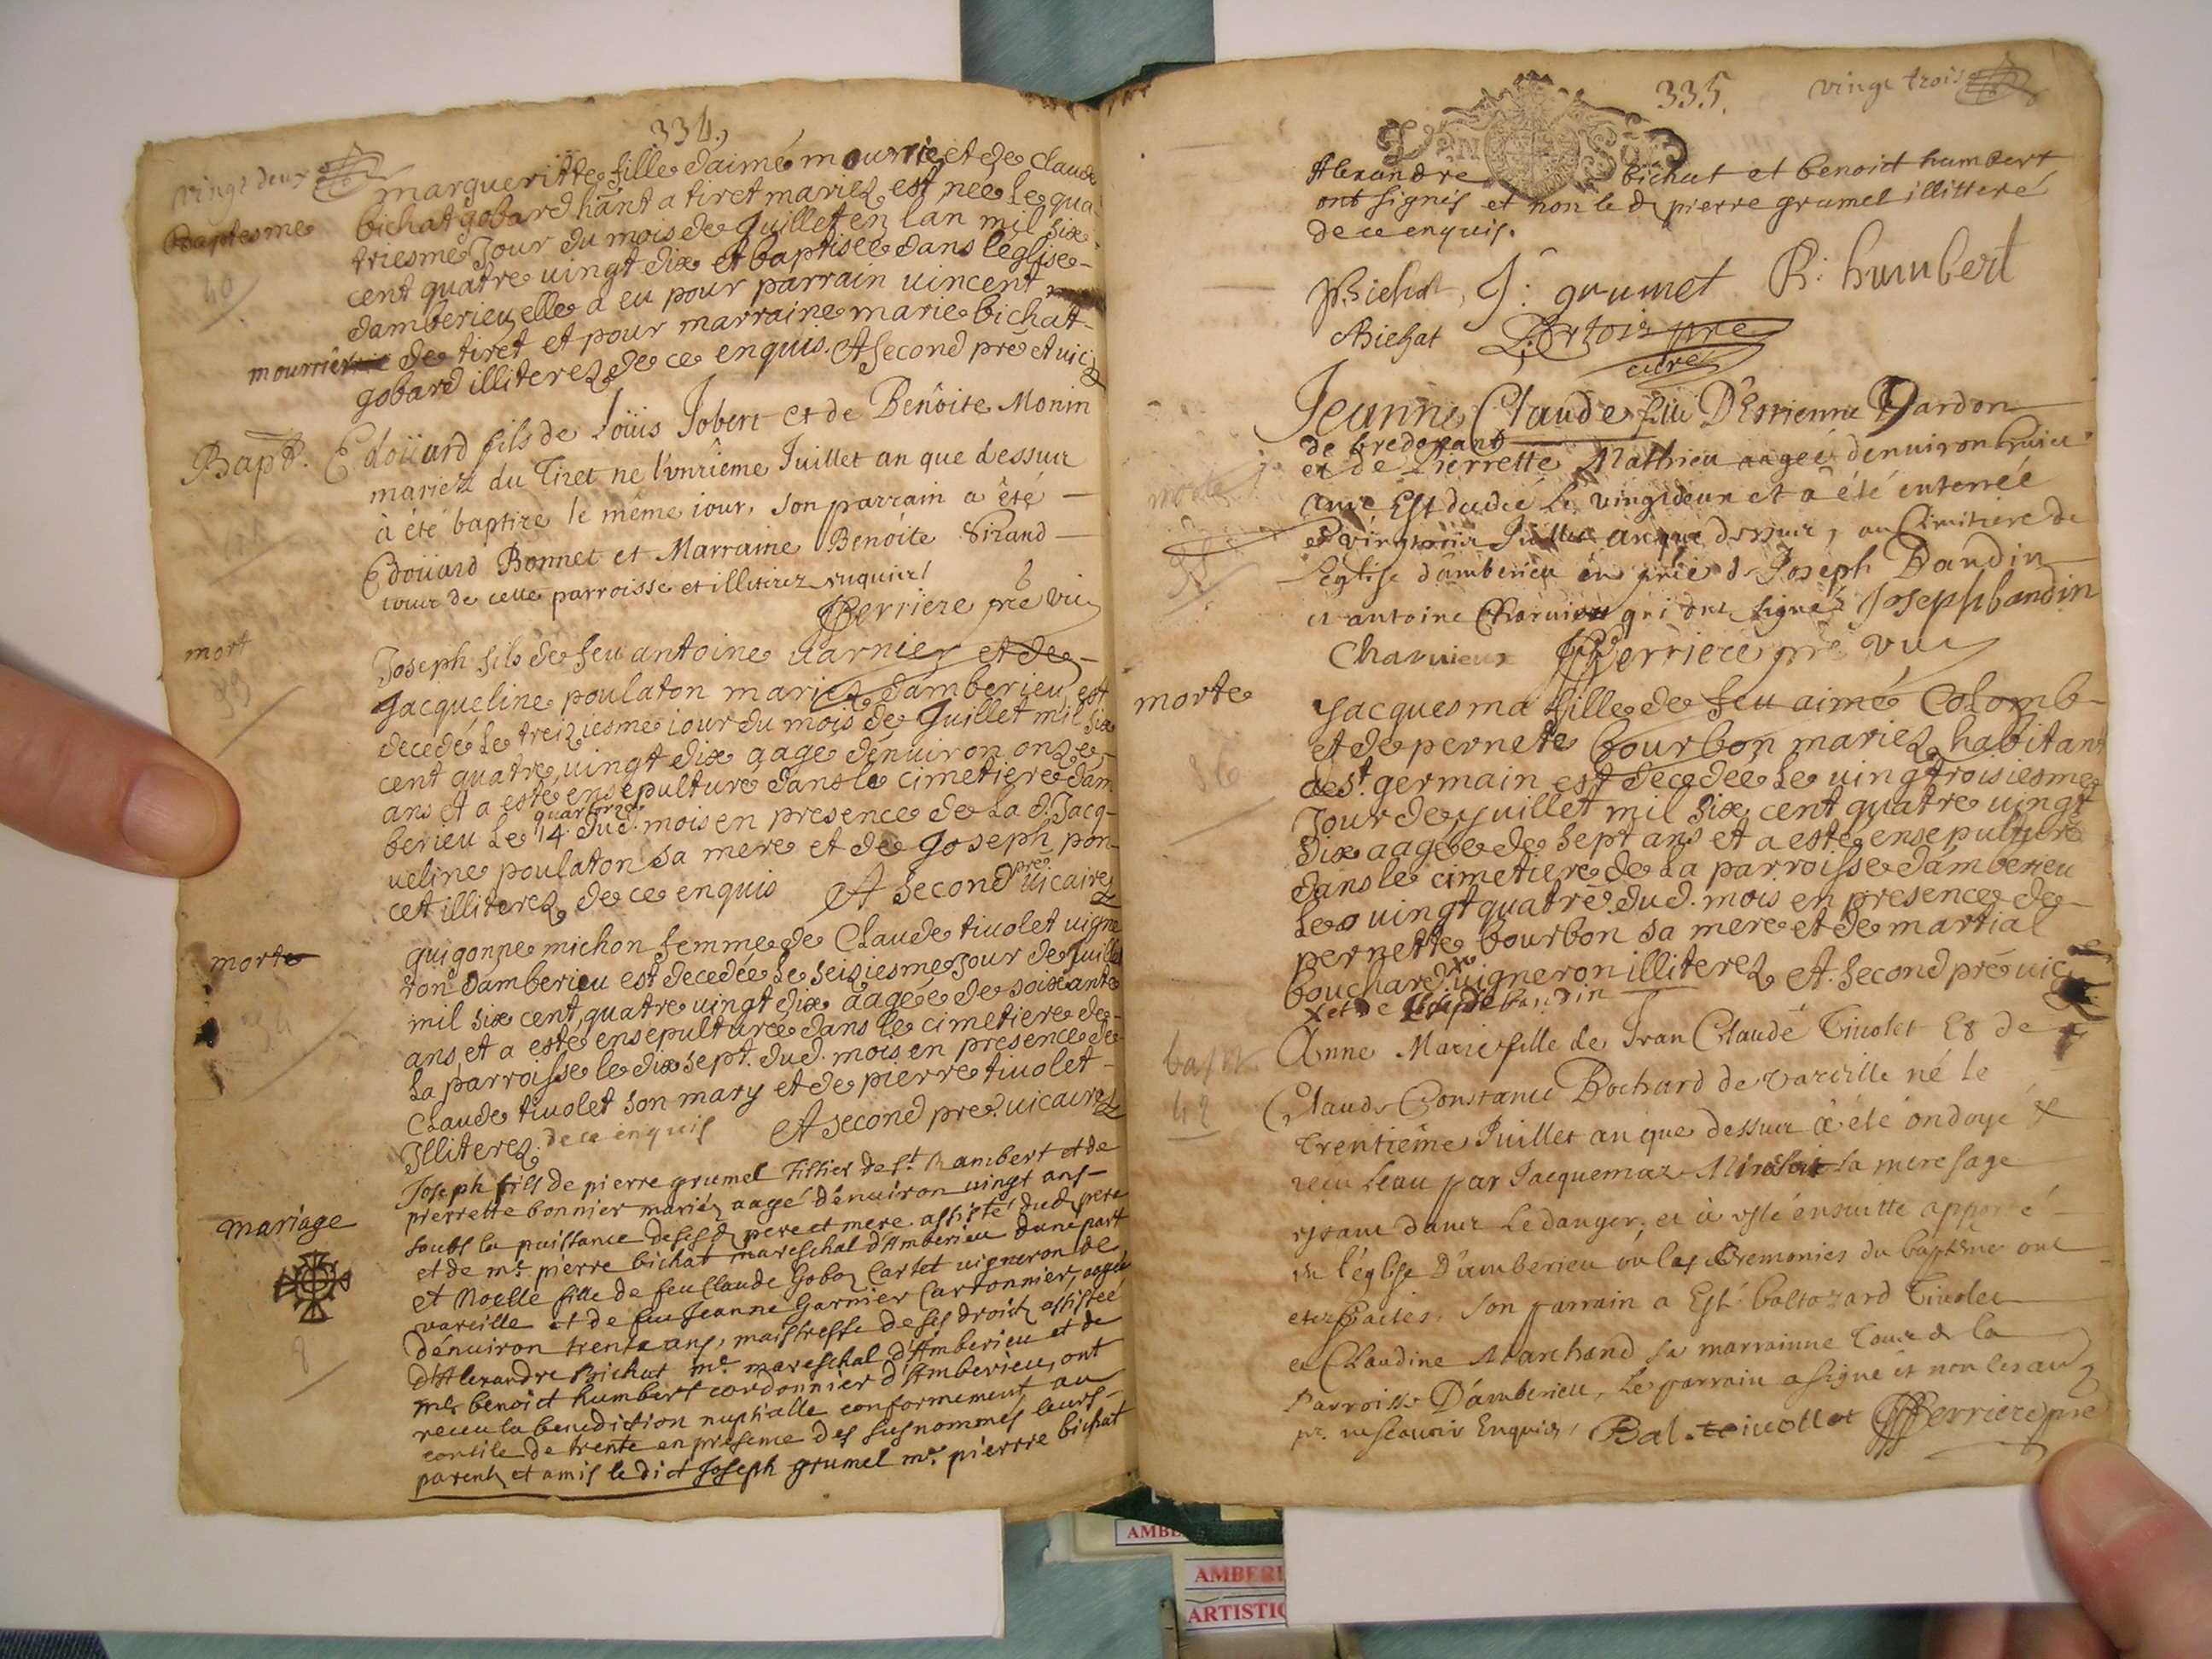 334.
vingt deux
Baptesme
40
margueritte fille daimé mourrie et de Claude
bichat gobard hant a tiret mariez est née le qua
triesme Jour du mois de Juillet en lan mil six
cent quatre vingt dix et baptisée dans leglise
damberieu elle a eu pour parrain vincent
mourrier de tiret et pour marraine marie bichat
gobard illiterez de ce enquis. A second pre et vic
Bapt.
Edoüard fils de Loüis Jobert et de Benôite Monin
mariez du Tiret ne l'onzième Juillet an que dessur
à été baptizé le même iour, son parrain a êté
Edoüard Bonnet et Marraine Benoite Sirand
tour de cette parroisse et illitirez enquier
Perriere pre vic
mort
33
Joseph fils de feu antoine Garnier et de
Jacqueline poulaton mariez damberieu est
decedé le treiziesme iour du mois de Juillet mil six
cent quatre vingt dix aage dénuiron onze
ans et a esté ensepulturé dans le cimetiere dam
quatorze
berieu Le 14. dud. mois en presence de La d. Jacq
ueline poulaton sa mere et de Joseph pon
cet illiterez de ce enquis A second pre vicaire
morte
34
guigonne michon femme de Claude tiuolet vigne
ron damberieu est decedée le seiziesme Jour de Juillet
mil six cent quatre vingt dix aagée de soixante
ans et a esté ensepulturée dans le cimetiere de
La parroisse le dix sept. dud. mois en presence de
Claude tiuolet son mary et de pierre tiuolet
Illiterez de ce enquis A second pre vicaire
mariage
8
Joseph fils de pierre grumel Tissier de St Rambert et de
pierrette bonnier mariéz aagé dénuiron vingt ans
soubs la puissance de ses d. pere et mere assisté dud. pere
et de mr. pierre bichat mareschal d'Amberieu dune part
et Noelle fille de feu Claude Goboz Cartet vigneron de
vareille et de feu Jeanne Garnier Cartonnier, aagée
dénuiron trente ans, maistresse de ses droits assistée
d'Alexandre Bichat mr. mareschal d'Amberieu et de
mr. benoict humbert cordonnier d'Amberieu, ont
receu la benediction nuptialle conformement au
concile de trente en presence des susnommés leurs
parents et amis le dict Joseph grumel mr. pierre bichat
335.
vingt trois
Alexandre bichat et benoict humbert
ont signés et non le d. pierre grumel illitteré
de ce enquis.
Bichat, J: grumet B: humbert
Bichat pre
curé
Jeanne Claude fille D'Estienne Dardon
de bredevant
et de Pierrette Mathieu aagée denuiron huict
morte
35
ans Est decedée le vingtdeux et a été enterrée
au Cimitiere de
l'eglise d'amberieu en pnce d. Joseph Bandin
et antoine Charuieu qui ont signéz Joseph bandin
Charuieux Perriere pre vic
morte
36
Jacquesma fille de feu aimé Colomb
et de pernete bourbon mariez habitant
de St. germain est decedée Le vingtroisiesme
Jour de juillet mil six cent quatre vingt
dix aagée de sept ans et a esté ensepulturé
dans le cimetiere de La parroisse damberieu
Le vingt quatre. dud. mois en presence de
pernette bourbon sa mere et de martial
bouchard vigneron illiterez A. second pre vic
bapt.
42
Anne Marie fille de Jean Claude Tiuolet & de
Claude Constance Bochard de Vareille né le
trentième Juillet an que dessur à été ondoyé &
receu leau par Jacquemaz la mere sage
etant dans le danger, et à esté ensuitte apporté
en l'église D'amberieu ou les Ceremonies du baptême ont
eté faites. Son parrain a Esté baltazard Tiuolet
et Claudine Marchand sa marrainne Tour d. la
Parroisse D'amberieu, Le parrain a signé et non les au
pr. ne scavoir Enquis, Bal. tiuollet Perriere pre
AMBE
AMBERI
ARTISTIQ